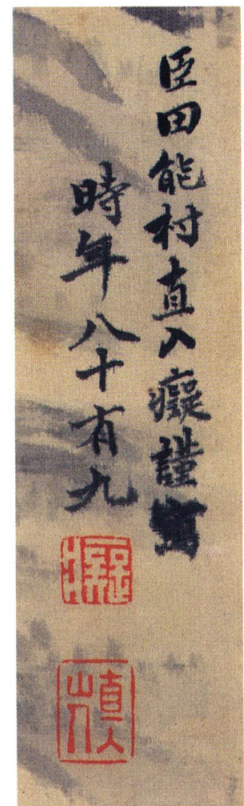 臣田能村直入癡謹寫
時年八十有九
直入山人